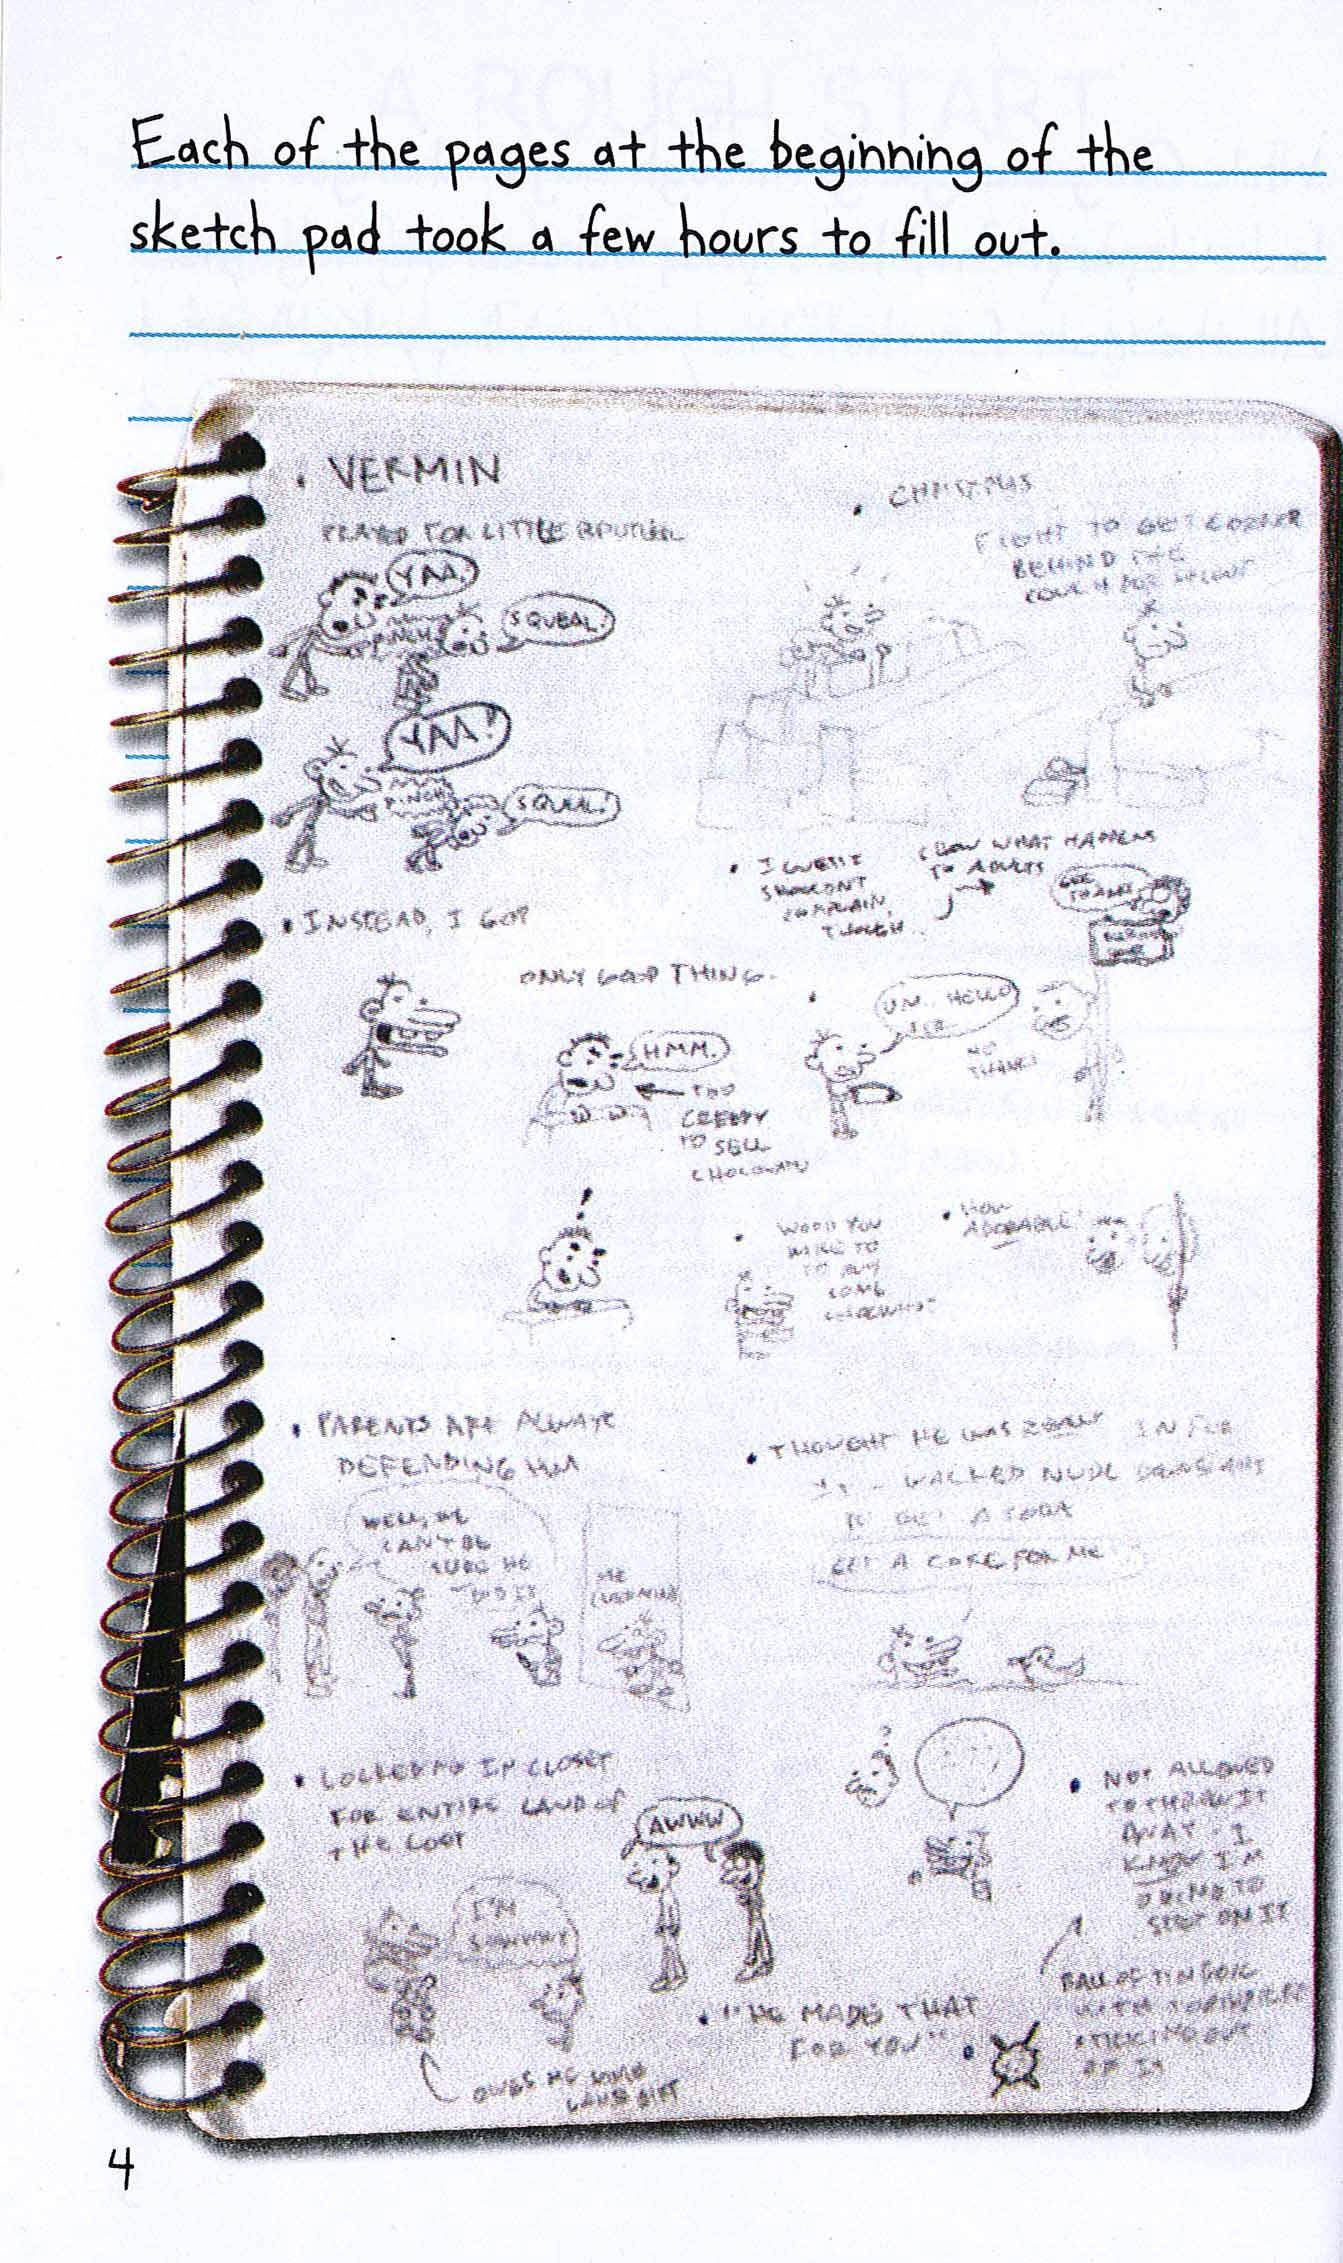 Each of the pages at the beginning of the
sketch pad took a few hours to fill out.
• VERMIN
PRAYED FOR LITTLE BROTHER
YAA!
PINCH
SQUEAL!
YAA!
PINCH
SQUEAL!
• INSTEAD, I GOT
ONLY GOOD THING.
HMM.
TOO
CREEPY
TO SELL
CHOCOLATE
!
• PARENTS ARE ALWAYS
DEFENDING HIM
WELL, WE
CAN'T BE
SURE HE
DID IT
ME
• LOCKED ME IN CLOSET
FOR ENTIRE LAND OF
THE LOST
I'M
AWWW
OWES ME
• CHRISTMAS
FIGHT TO GET CORNER
BEHIND THE
COUCH FOR
• I
SHOULDN'T
COMPLAIN,
THOUGH
KNOW WHAT HAPPENS
TO ADULTS
GEE
THANKS
• UM.. HELLO
SIR
NO
THANKS
• WOULD YOU
LIKE TO
TO BUY
SOME
• HOW
ADORABLE!
• THOUGHT HE WAS REALLY IN FOR
IT - WALKED NUDE DOWNSTAIRS
TO GET A SODA
GET A COKE FOR ME
?
• NOT ALLOWED
TO THROW IT
AWAY - I
KNOW I'M
GOING TO
STEP ON IT
• "HE MADE THAT
FOR YOU"
• BALL OF TIN FOIL
WITH TOOTHPICKS
STICKING OUT
OF IT
4